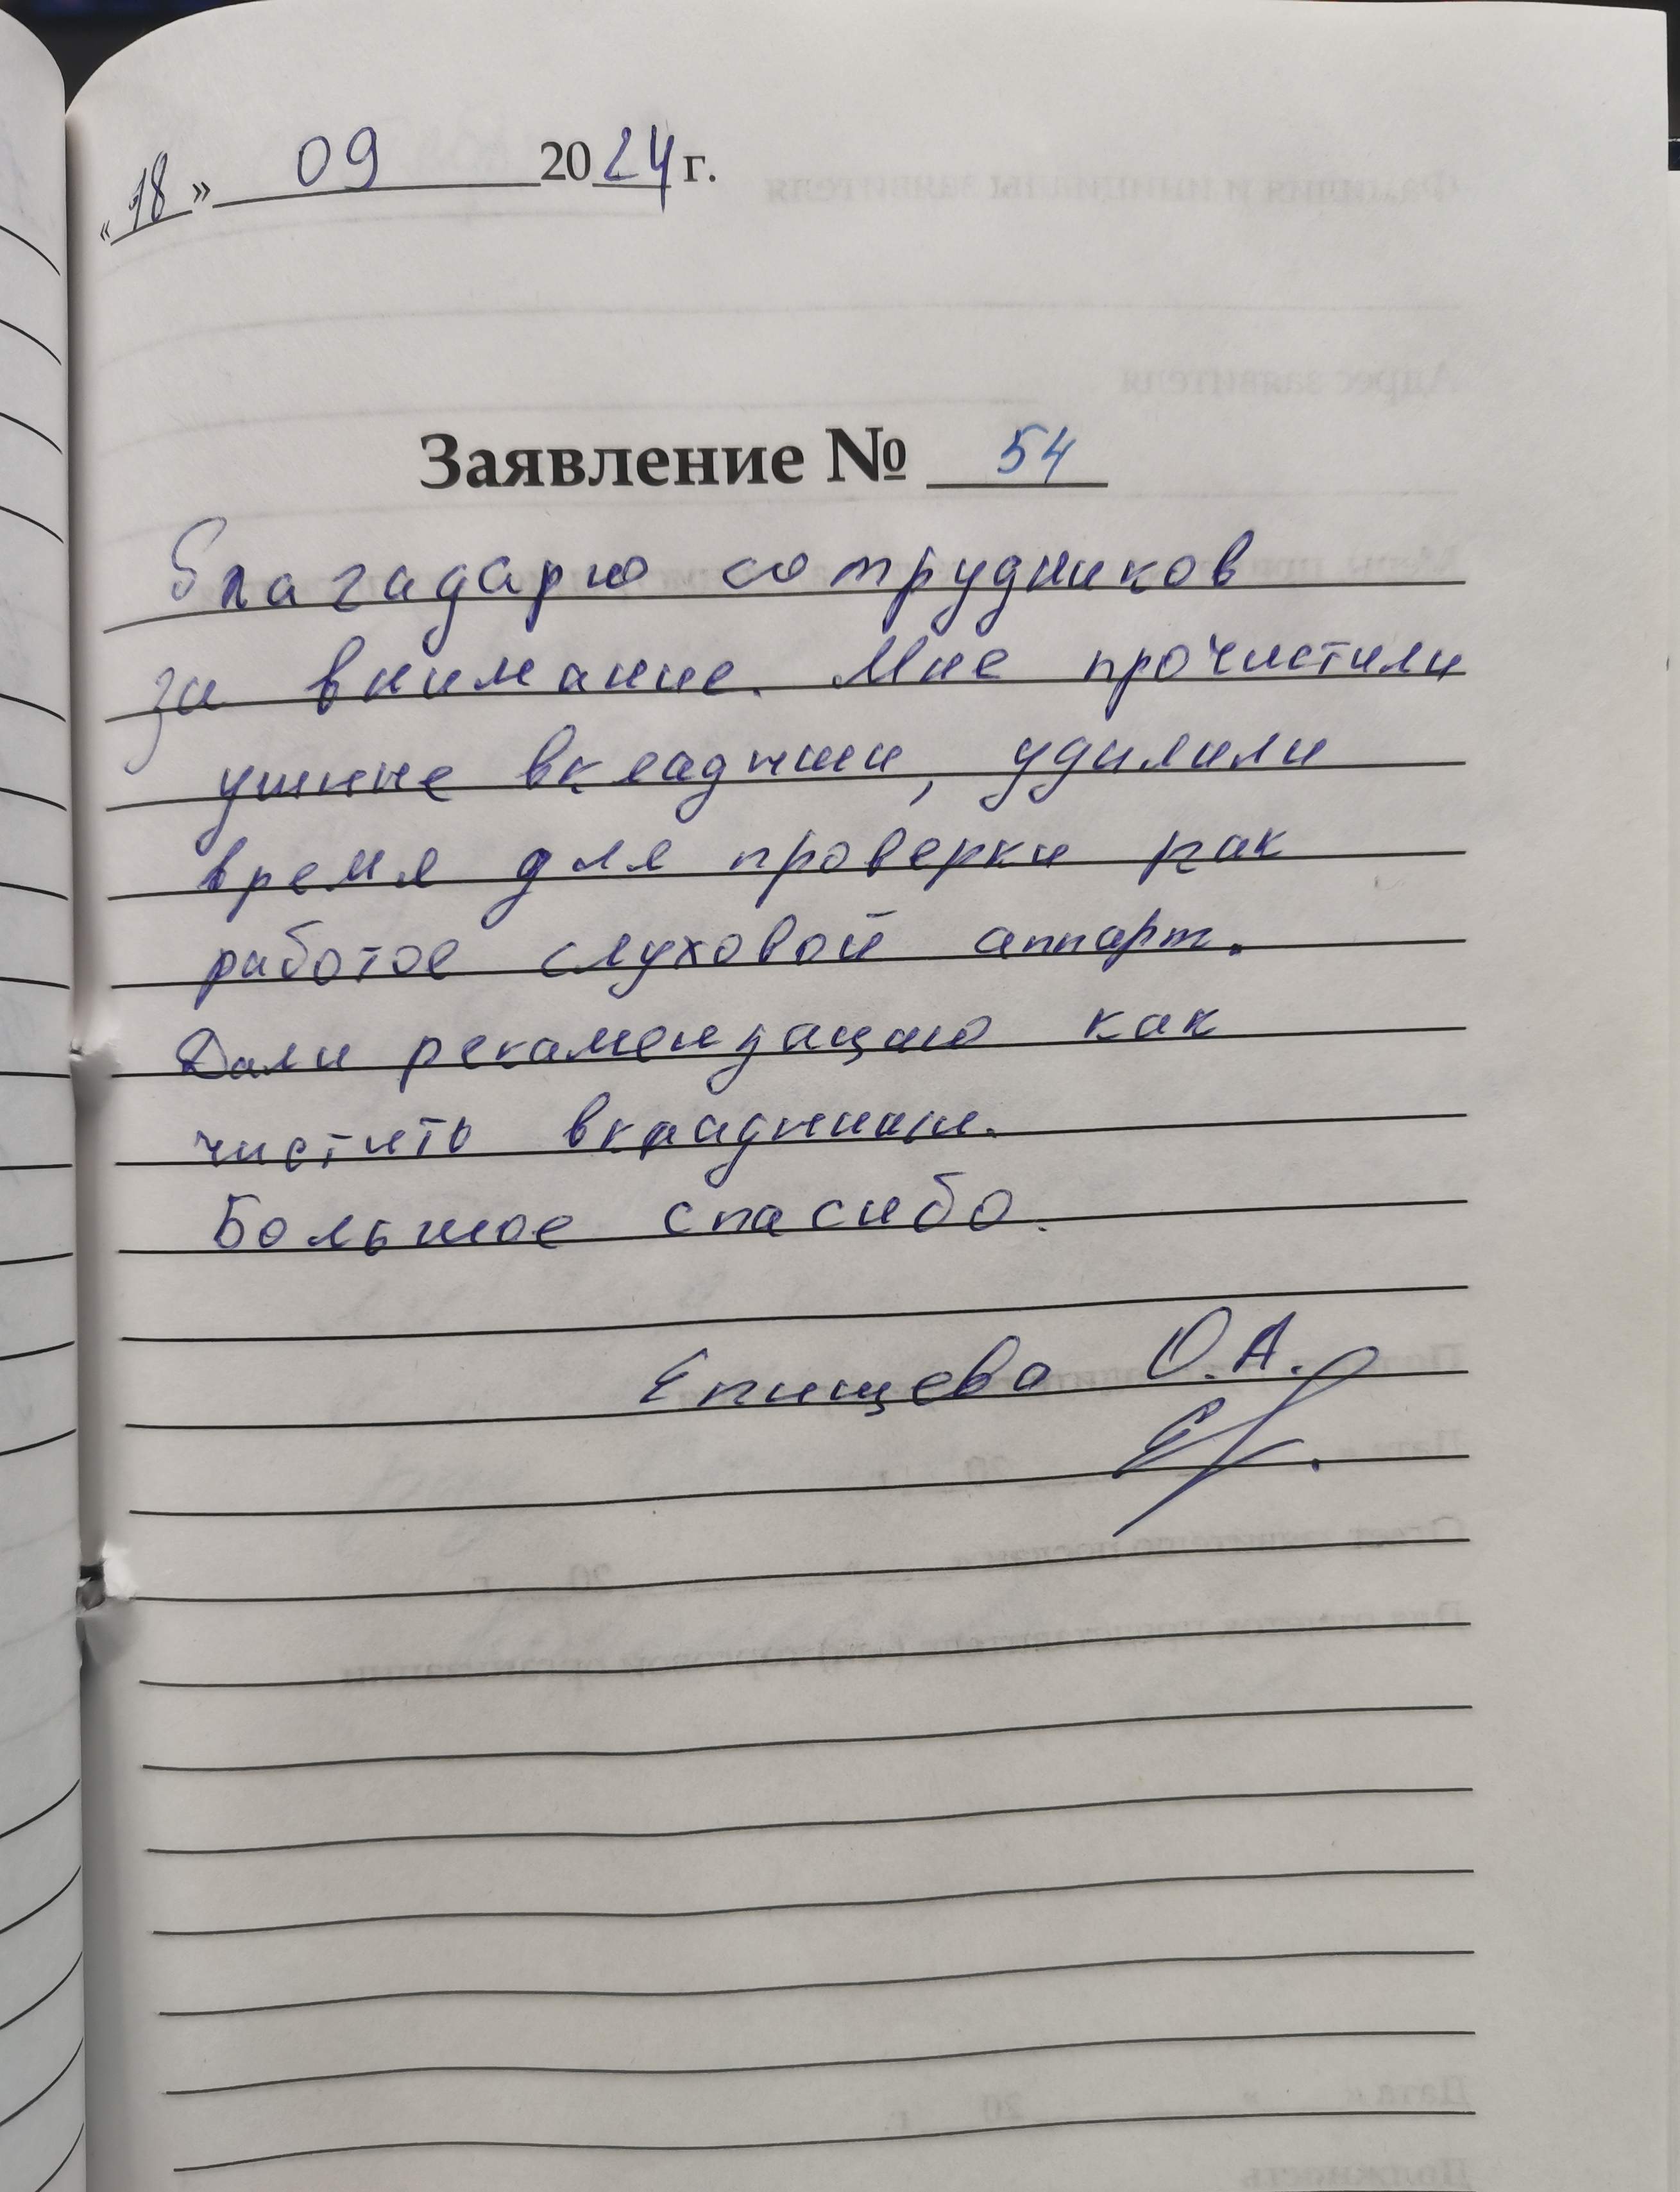 «18» 09 2024 г.
Заявление № 54
Благадарю сотрудников
за внимание. Мне прочистили
ушные вкладыши, удилили
время для проверки как
работое слуховой аппарт.
Дали рекамендацию как
чистить вкладыши.
Большое спасибо.
Епищева О.А.